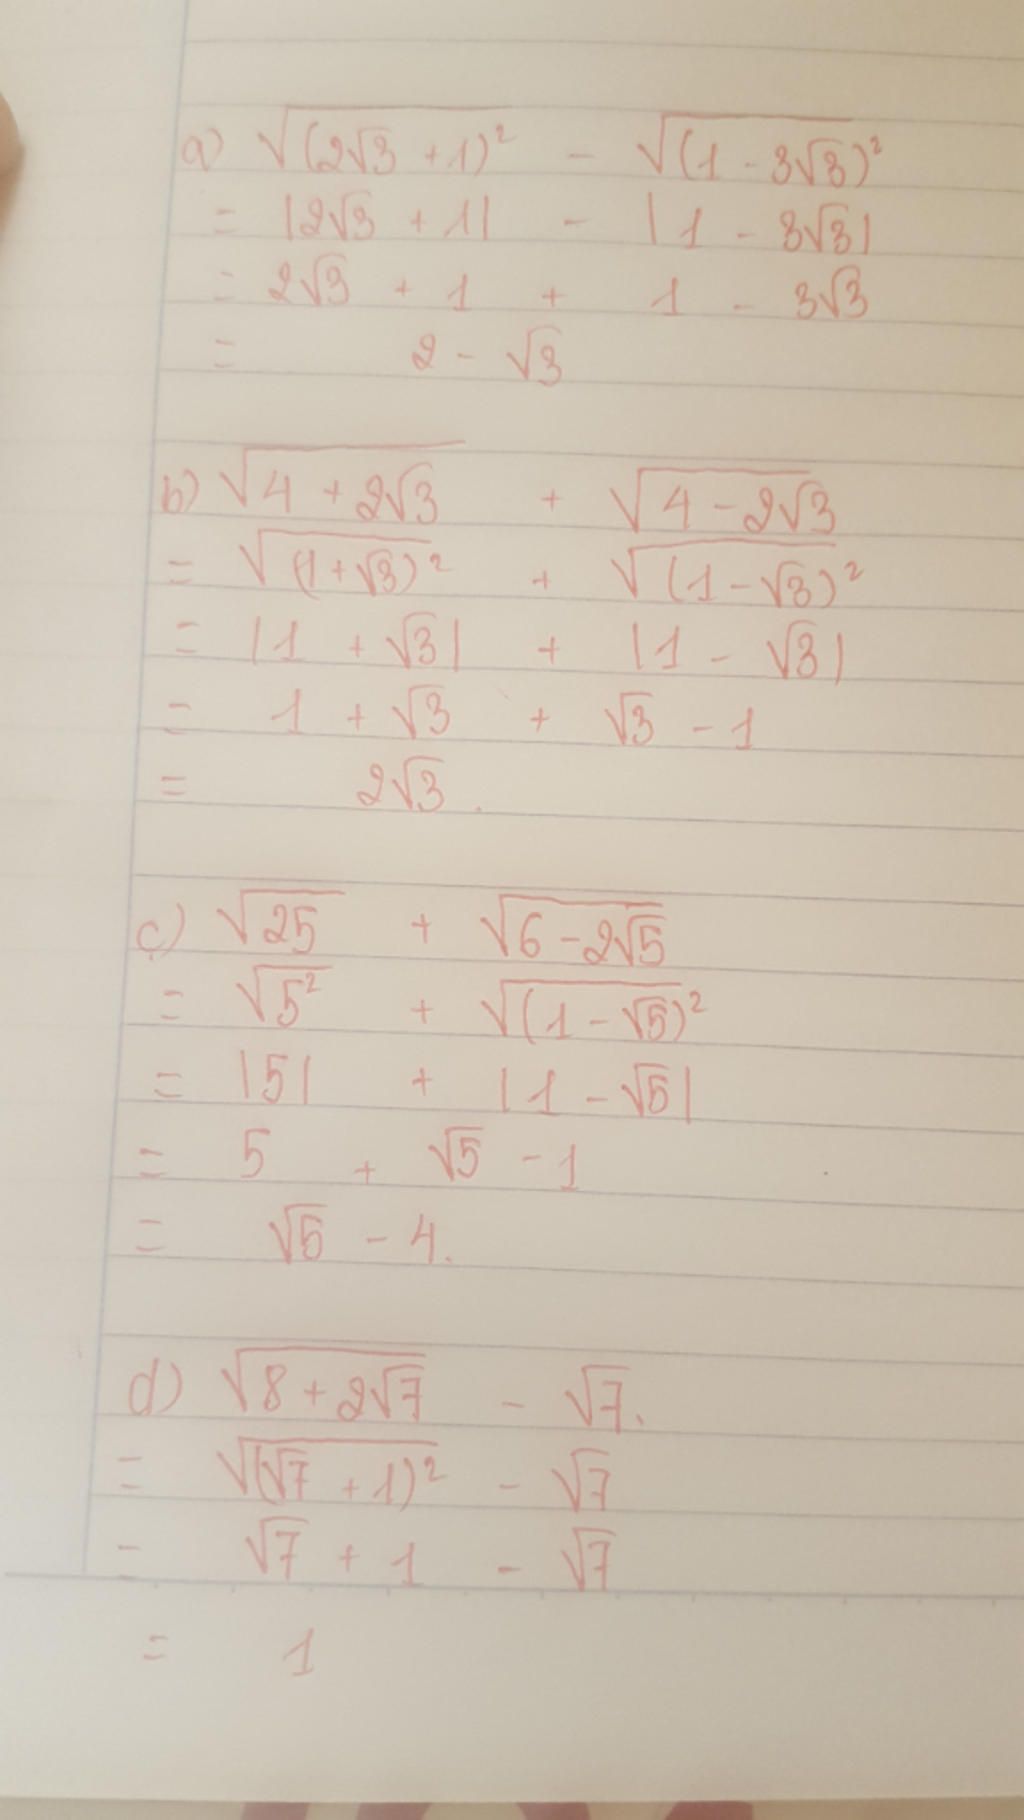 a) √(2√3 + 1)² - √(1 - 3√3)²
= |2√3 + 1| - |1 - 3√3|
= 2√3 + 1 + 1 - 3√3
= 2 - √3
b) √4 + 2√3 + √4 - 2√3
= √(1 + √3)² + √(1 - √3)²
= |1 + √3| + |1 - √3|
= 1 + √3 + √3 - 1
= 2√3.
c) √25 + √6 - 2√5
= √5² + √(1 - √5)²
= |5| + |1 - √5|
= 5 + √5 - 1
= √5 - 4.
d) √8 + 2√7 - √7.
= √(√7 + 1)² - √7
= √7 + 1 - √7
= 1